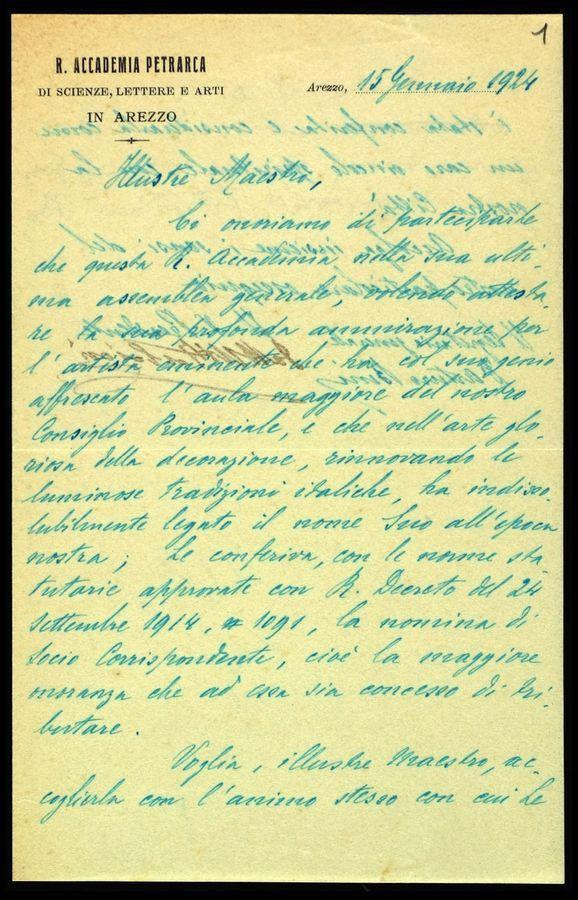 1
R. ACCADEMIA PETRARCA
DI SCIENZE, LETTERE E ARTI
IN AREZZO
Arezzo, 15 Gennaio 1924
Illustre Maestro,
Ci onoriamo di parteciparle
che questa R. Accademia nella sua ulti-
ma assemblea generale, volendo attesta-
re la sua profonda ammirazione per
l'artista eminente che ha col suo genio
affrescato l'aula maggiore del nostro
Consiglio Provinciale, e che nell'arte glo-
riosa della decorazione, rinnovando le
luminose tradizioni italiche, ha indisso-
lubilmente legato il nome Suo all'epoca
nostra; Le conferiva, con le norme sta-
tutarie approvate con R. Decreto del 24
Settembre 1914, n 1091, la nomina di
Socio Corrispondente, cioè la maggiore
onoranza che ad essa sia concesso di tri-
butare.
Voglia, illustre Maestro, ac-
coglierla con l'animo stesso con cui Le